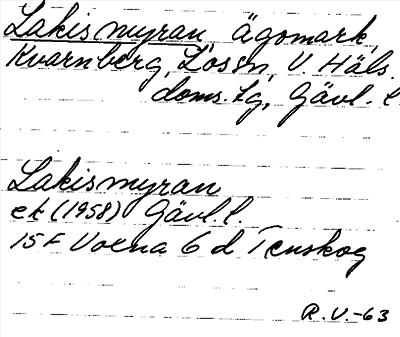 Lakismyran, ägomark,
Kvarnberg, Los sn, V. Häls.
doms.lg, Gävl. l.
Lakismyran
ek (1958) Gävl. l.
15 F Voxna 6 d Tenskog
R.V.-63